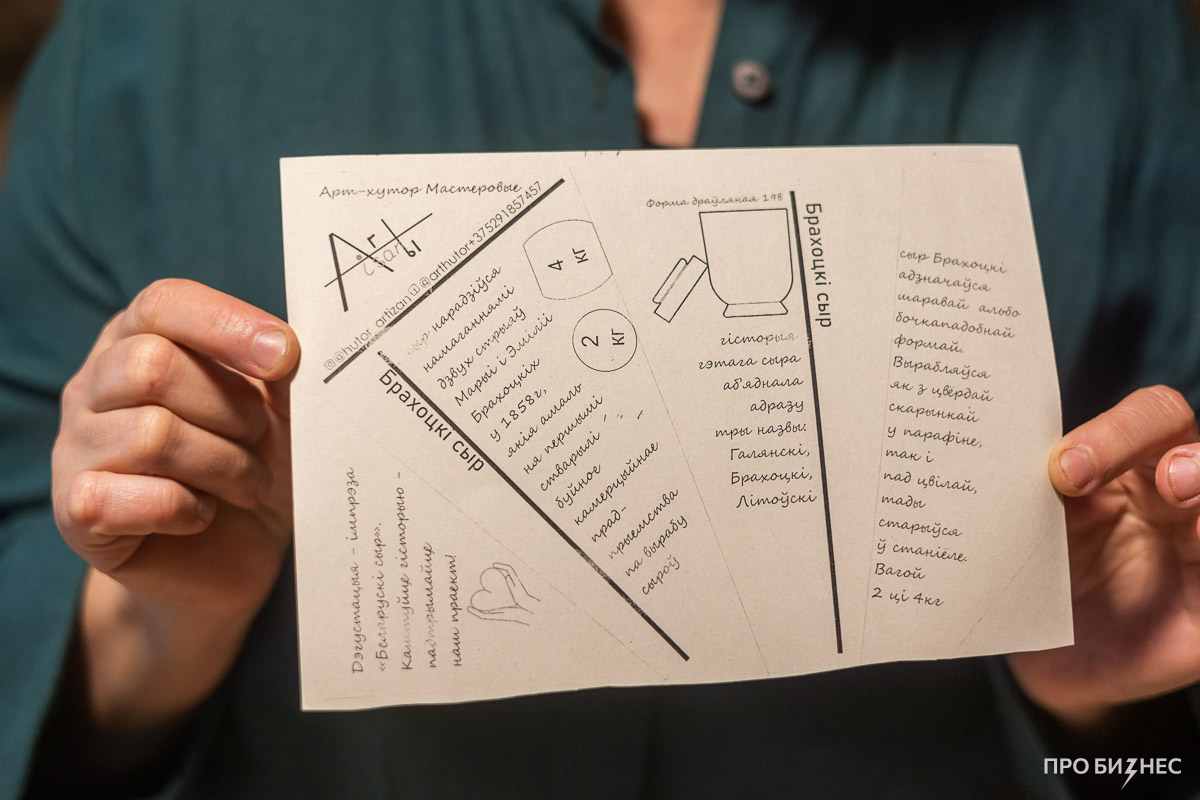 Арт-хутор Мастеровые
Art
ы
@hutor_artizan @arthutor+375291857457
Брахоцкі сыр
сыр нарадзіўся
намаганнямі
дзвух стрыяў
Марыі і Эміліі
Брахоцкіх
у 1858г,
якія амаль
на першымі
стварылі
буйное
камерцыйнае
прад-
прыемства
па вырабу
сыроў
4
кг
2
кг
Дэгустацыя - імпрэза
«Беларускі сыр».
Каштуйце гісторыю -
падтрымайце
наш праект!
Форма драўляная 198
Брахоцкі сыр
гісторыя
гэтага сыра
аб'яднала
адразу
тры назвы:
Галянскі,
Брахоцкі,
Літоўскі
сыр Брахоцкі
адзначаўся
шаравай альбо
бочкападобнай
формай.
Вырабляўся
як з цвёрдай
скарынкай
у парафіне,
так і
пад цвілай,
тады
старыўся
ў станіёле.
Вагой
2 ці 4кг
ПРО БИЗНЕС